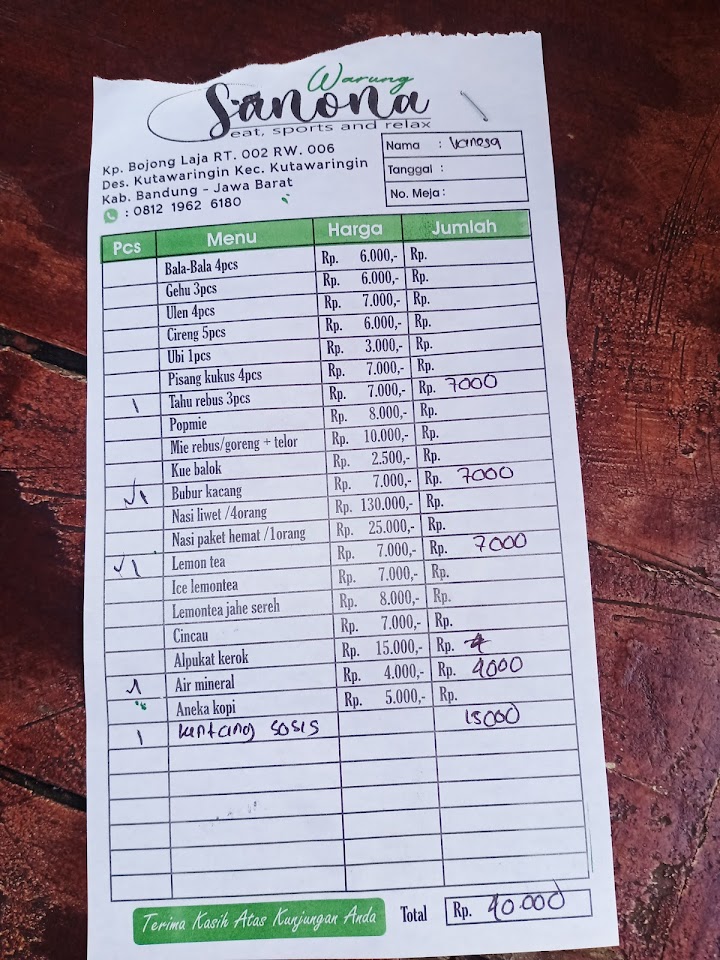 Warung
Sanona
eat, sports and relax
Kp. Bojong Laja RT. 002 RW. 006
Des. Kutawaringin Kec. Kutawaringin
Kab. Bandung - Jawa Barat
: 0812 1962 6180
Nama : Vanesa
Tanggal :
No. Meja :
Pcs Menu Harga Jumlah
Bala-Bala 4pcs Rp. 6.000,- Rp.
Gehu 3pcs Rp. 6.000,- Rp.
Ulen 4pcs Rp. 7.000,- Rp.
Cireng 5pcs Rp. 6.000,- Rp.
Ubi 1pcs Rp. 3.000,- Rp.
Pisang kukus 4pcs Rp. 7.000,- Rp.
1 Tahu rebus 3pcs Rp. 7.000,- Rp. 7000
Popmie Rp. 8.000,- Rp.
Mie rebus/goreng + telor Rp. 10.000,- Rp.
Kue balok Rp. 2.500,- Rp.
✓1 Bubur kacang Rp. 7.000,- Rp. 7000
Nasi liwet /4orang Rp. 130.000,- Rp.
Nasi paket hemat /1orang Rp. 25.000,- Rp.
✓1 Lemon tea Rp. 7.000,- Rp. 7000
Ice lemontea Rp. 7.000,- Rp.
Lemontea jahe sereh Rp. 8.000,- Rp.
Cincau Rp. 7.000,- Rp.
Alpukat kerok Rp. 15.000,- Rp.
1 Air mineral Rp. 4.000,- Rp. 4000
Aneka kopi Rp. 5.000,- Rp.
1 kentang sosis 15000
Terima Kasih Atas Kunjungan Anda Total Rp. 40.000